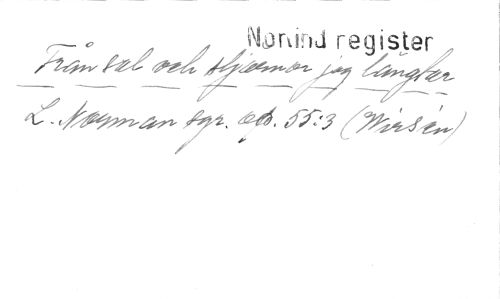 Norlind register
Från sol och stjernor jag längtar
L. Norman sgr. op. 55:3 (Wirsén)